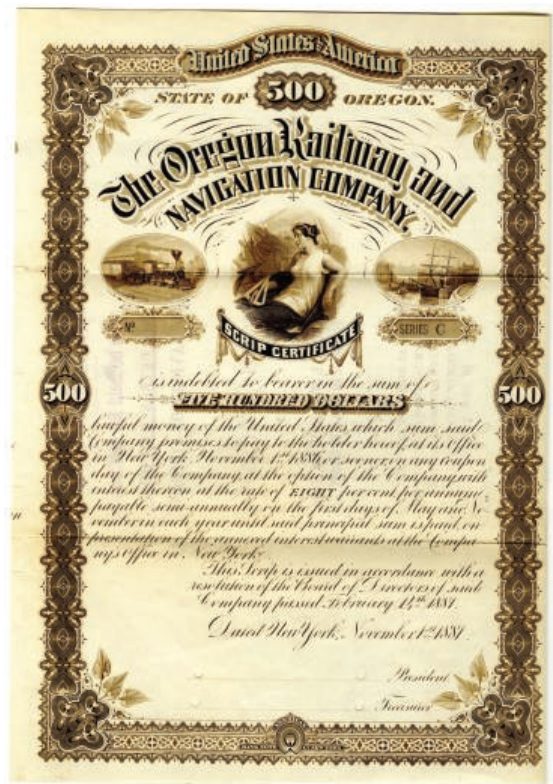 United States of America
STATE OF 500 OREGON.
The Oregon Railway and
NAVIGATION COMPANY.
Nº
SERIES C
SCRIP CERTIFICATE
is indebted to bearer in the sum of
FIVE HUNDRED DOLLARS
500
500
lawful money of the United States which sum said
Company promises to pay to the holder hereof, at its Office
in New York November 1st 1886, or sooner on any coupon
day of the Company, at the option of the Company, with
interest thereon at the rate of EIGHT per cent per annum
payable semi-annually on the first days of May and No
vember in each year until said principal sum is paid, on
presentation of the annexed interest warrants at the Compa
ny's Office in New York.
This Scrip is issued in accordance with a
resolution of the Board of Directors of said
Company passed February 14th 1881.
Dated New York, November 1st 1881.
President
Treasurer